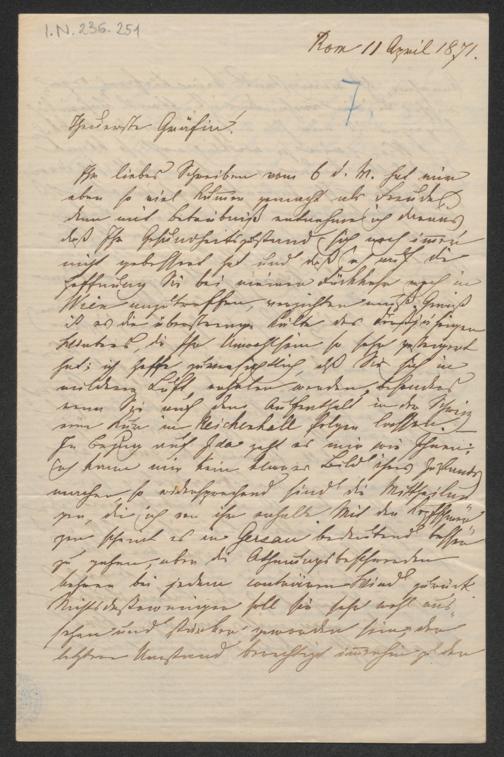 I.N. 236.251
Rom 11 April 1871.
7.
Theuerste Gräfin!
Ihr liebes Schreiben vom 6 d. M. hat mir
eben so viel Kummer gemacht als Freude,
denn mit Betrübniß entnehme ich daraus
daß Ihr Gesundheitszustand sich noch immer
nicht gebessert hat und daß ich auf die
Hoffnung Sie bei meiner Rückkehr noch in
Wien anzutreffen, verzichten muß. Gewiß
ist es die überstrenge Kälte des dießjährigen
Winters, die Ihr Unwohlsein so sehr gesteigert
hat; ich hoffe zuversichtlich, daß Sie sich in
milderer Luft erholen werden, besonders
wenn Sie auf den Aufenthalt in der Schweiz
eine Kur in Reichenhall folgen lassen.
In Bezug auf Ida geht es mir wie Ihnen:
ich kann mir kein klares Bild ihres Zustandes
machen, so widersprechend sind die Mittheilun
gen, die ich von ihr erhalte. Mit den
gen scheint es in Gersau bedeutend besser
zu gehen, aber die Athmungsbeschwerden
kehren bei jedem conträren Wind zurück.
Nichtsdestoweniger soll sie sehr wohl aus
sehen und stärker geworden sein, der
letztere Umstand berechtigt immerhin zu den